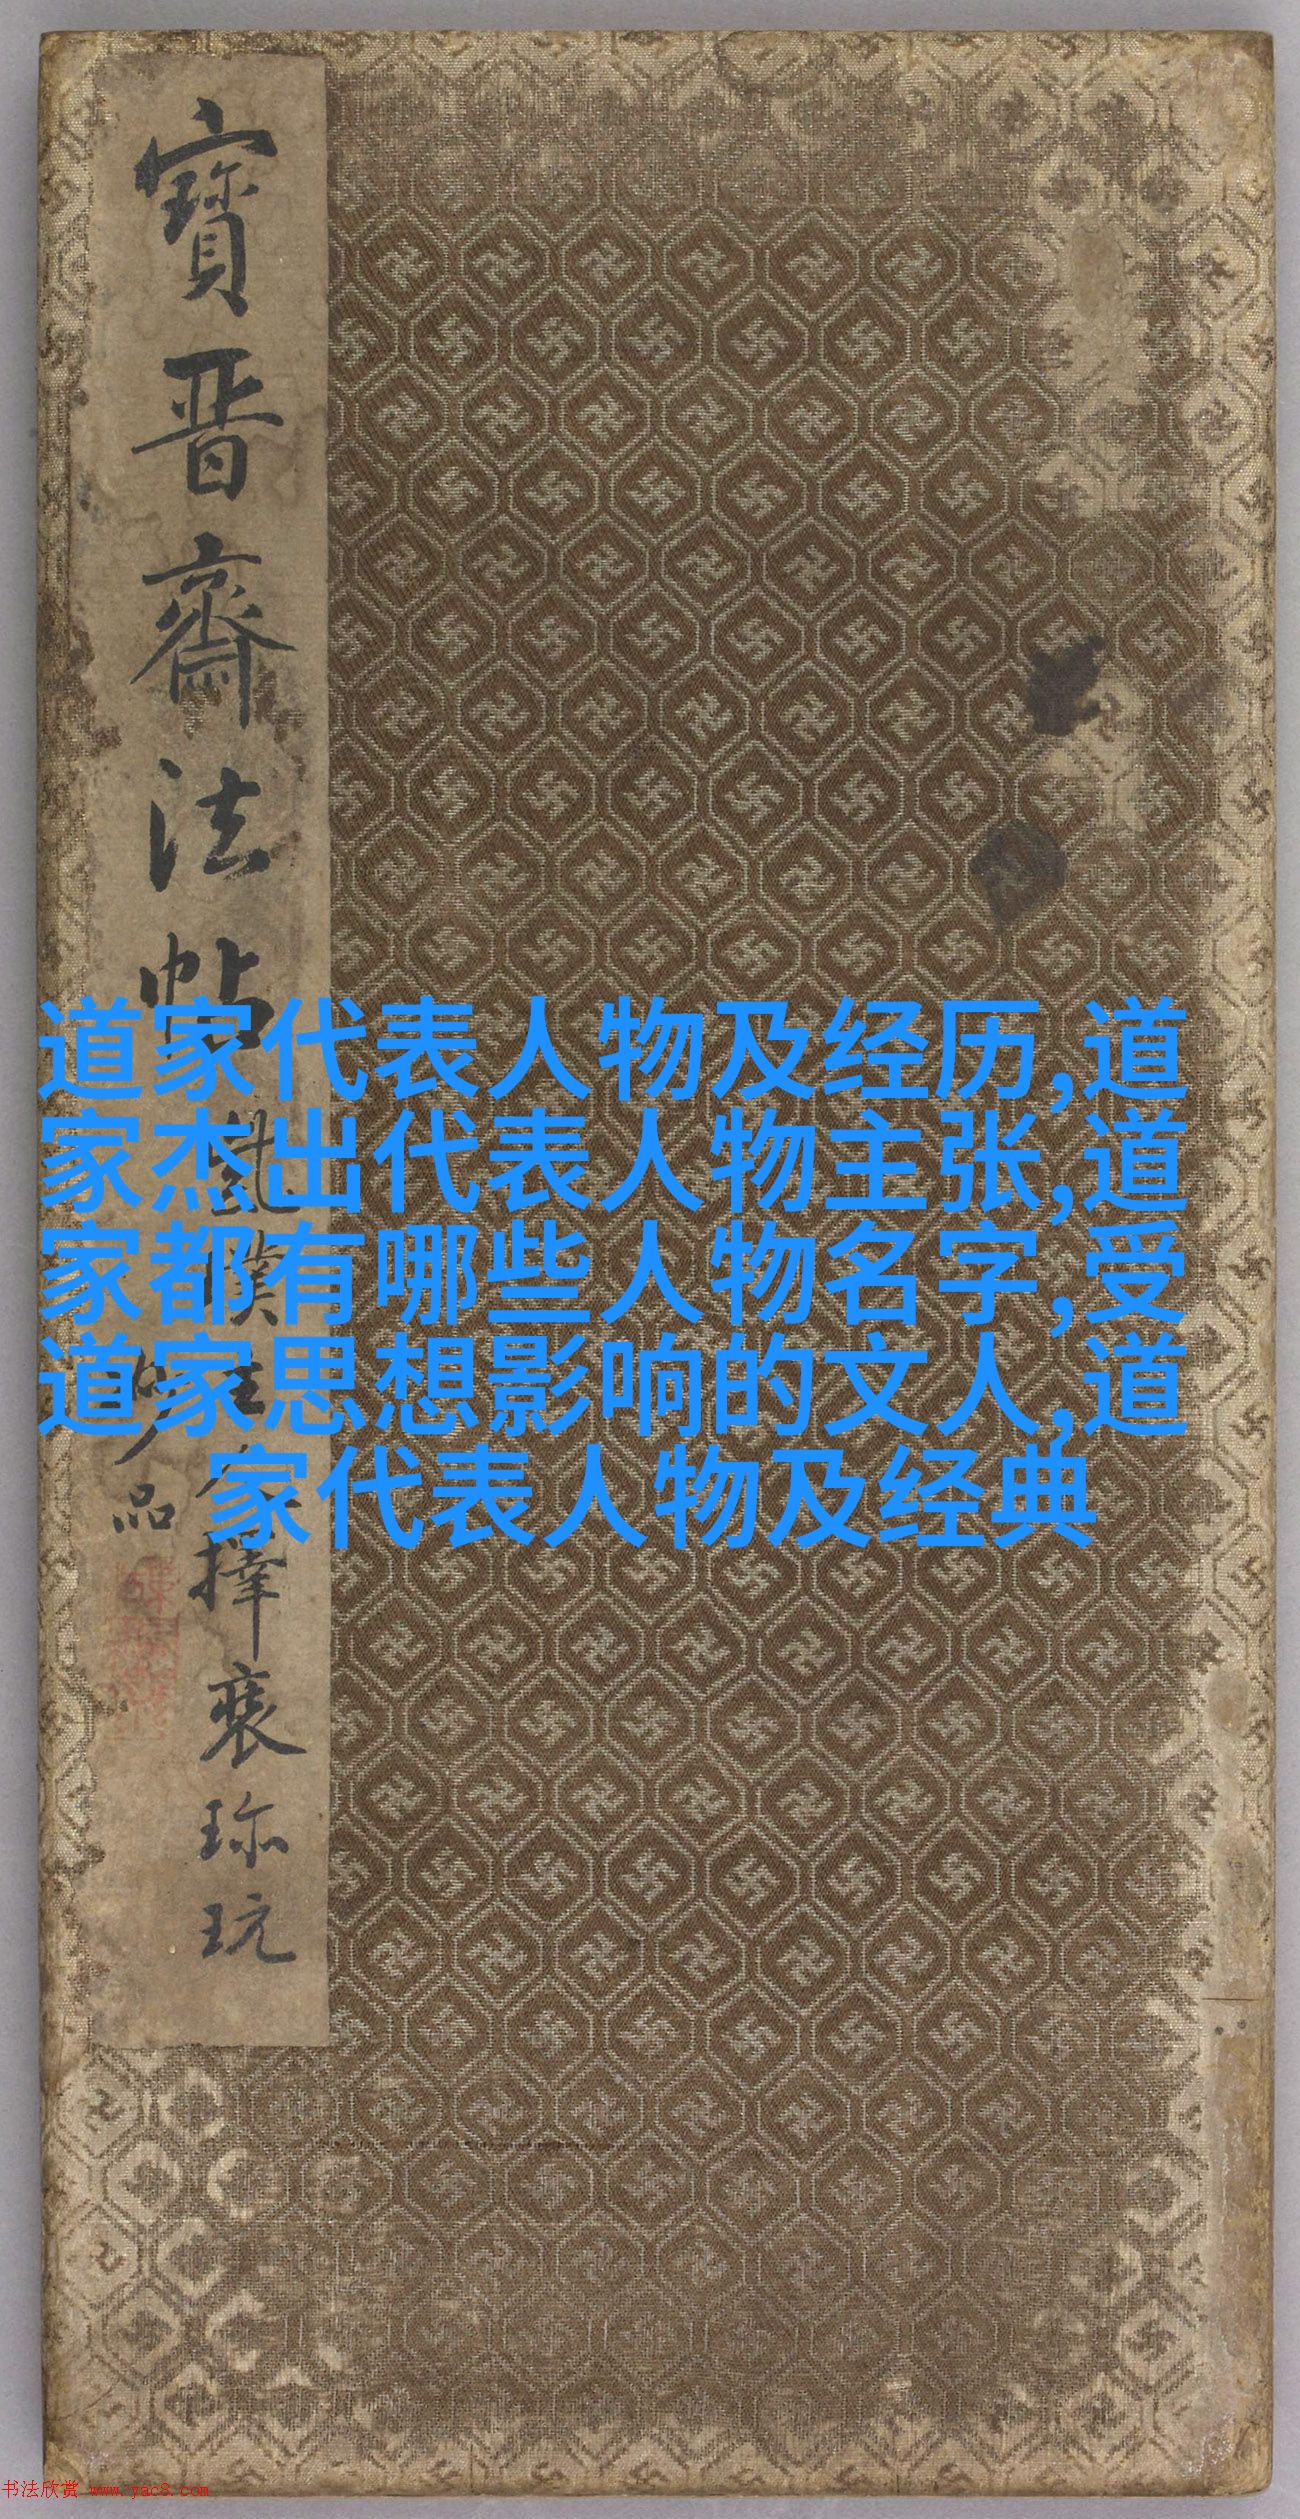 寶晋齋法帖
擇裘珎玩
品
道家代表人物及经历,道
家杰出代表人物主张,道
家都有哪些人物名字,受
道家思想影响的文人,道
家代表人物及经典
书法欣赏 www.yac8.com